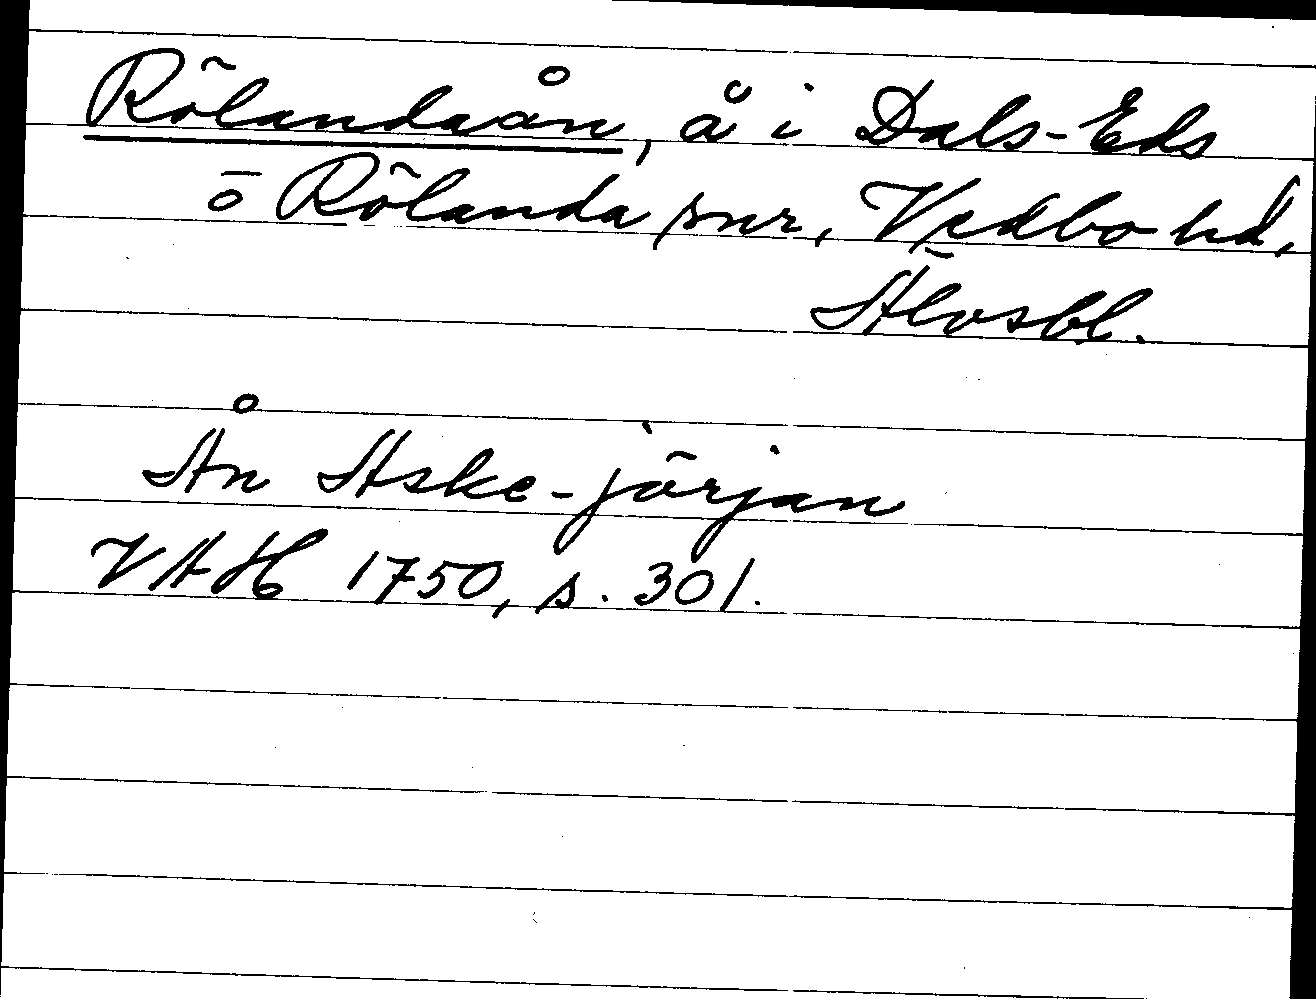 Rölandaån, å i Dals-Eds
o Rölanda snr, Vedbo hd,
Älvsbl.
Ån Aske-jörjan
VAH 1750, s. 301.